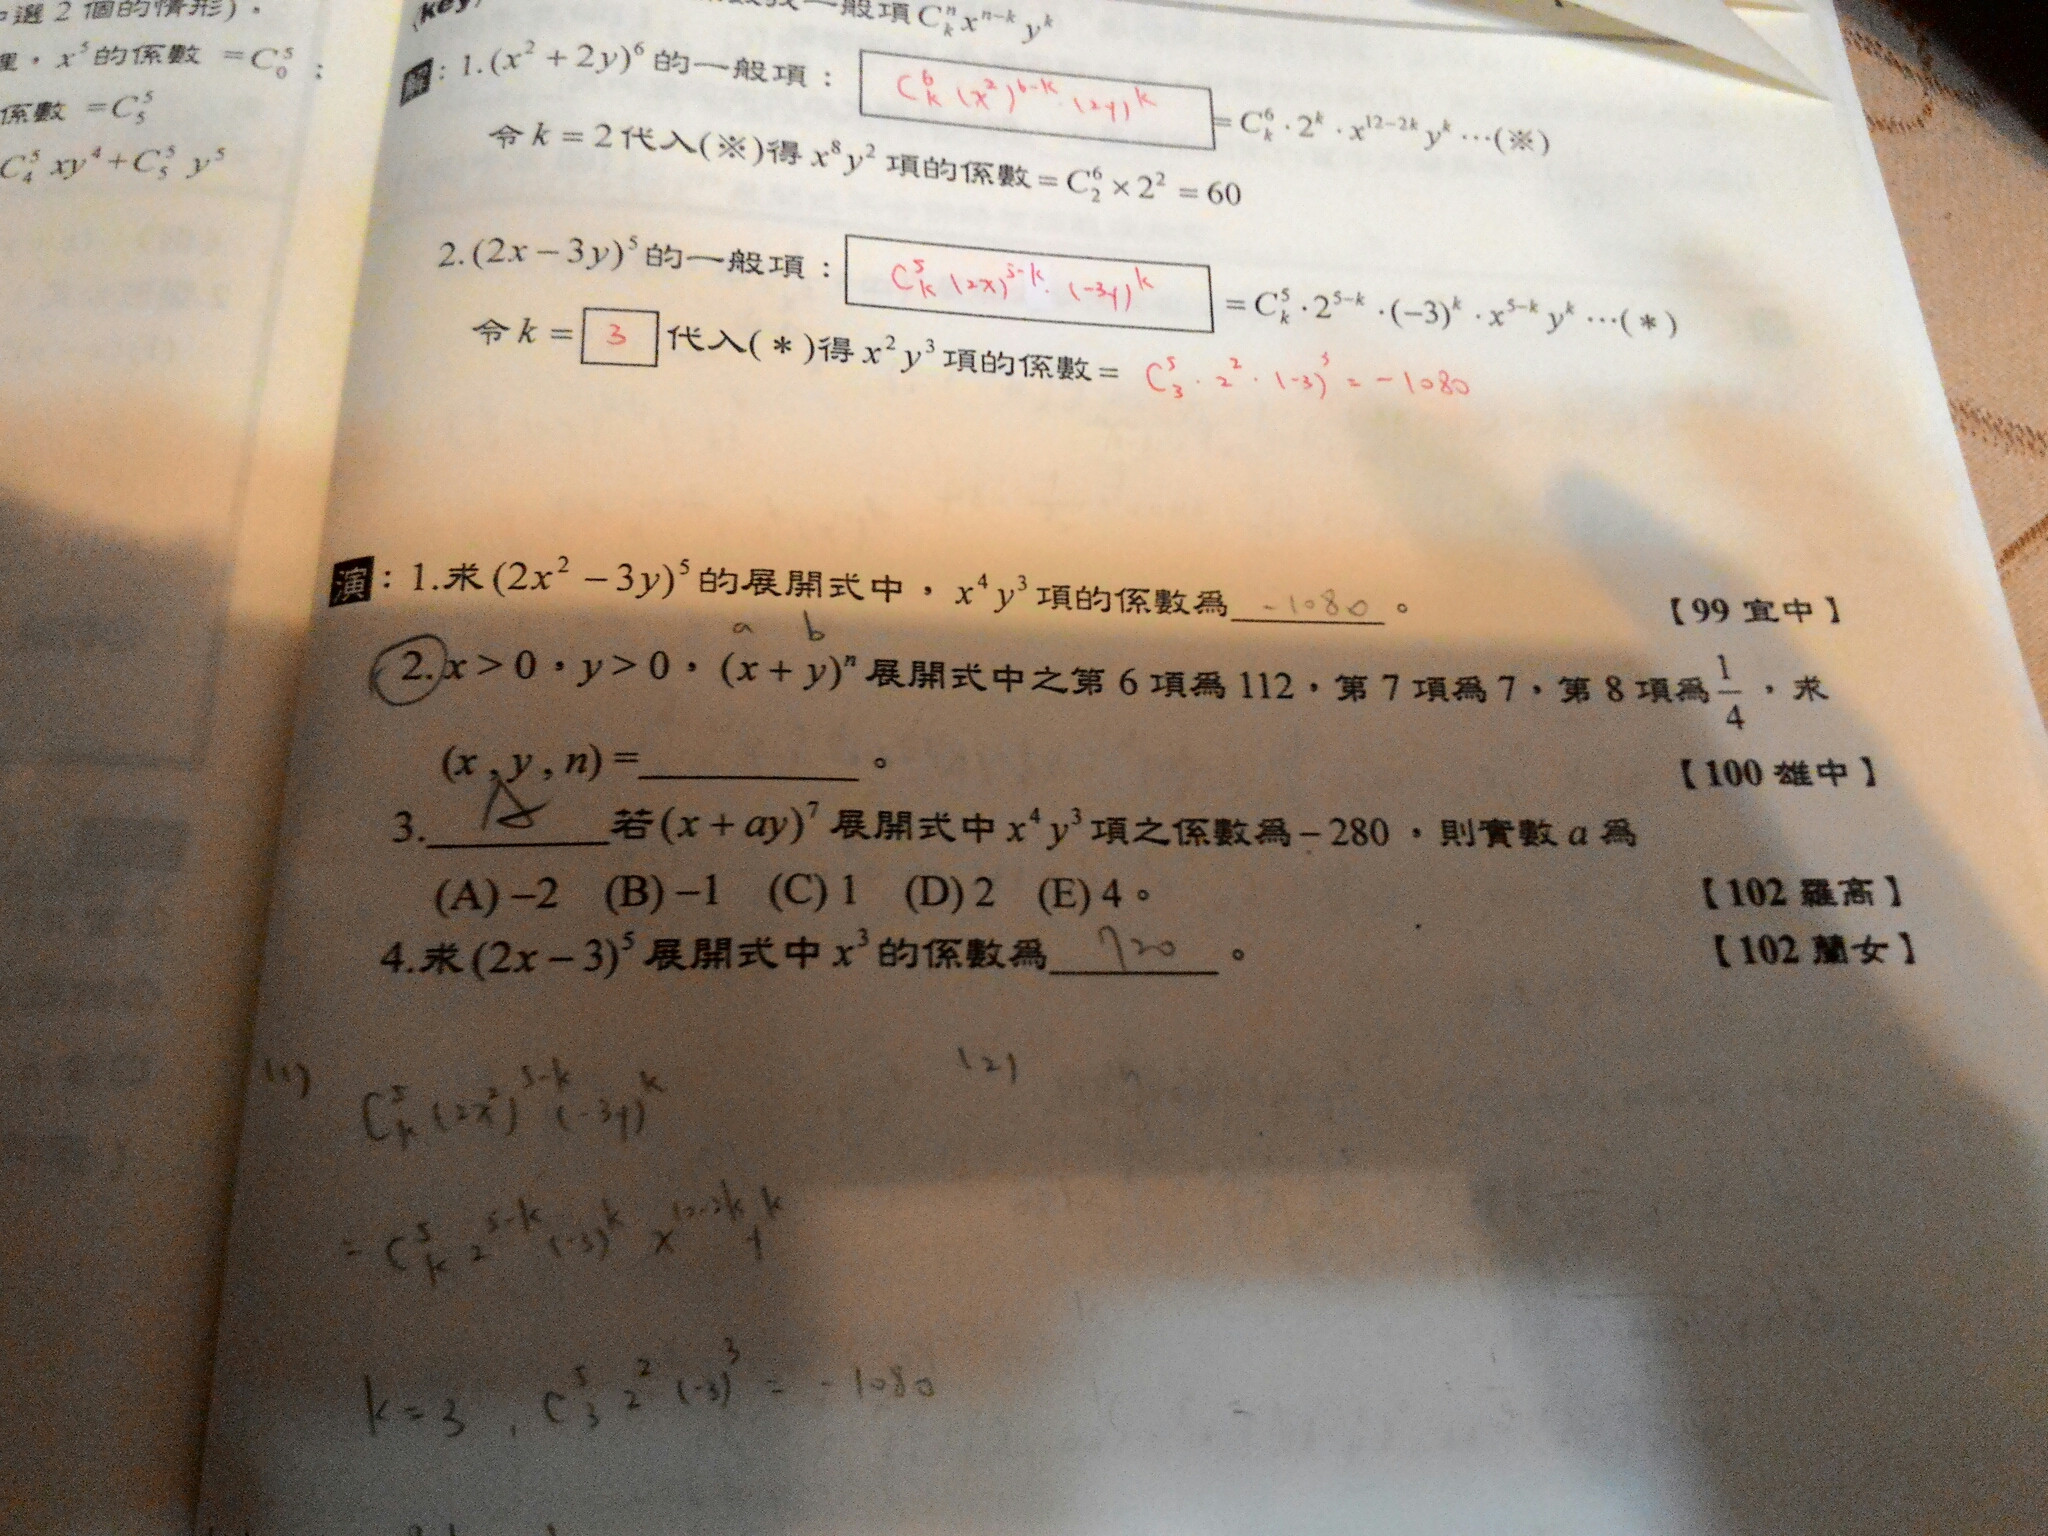 選 2 個的情形)，
，x⁵的係數 =C₀⁵；
係數 =C₅⁵
C₄⁵ xy⁴+C₅⁵ y⁵
(key)
一般項 Cₖⁿ xⁿ⁻ᵏ yᵏ
解：1.(x²+2y)⁶的一般項： Cₖ⁶ (x²)⁶⁻ᵏ·(2y)ᵏ =Cₖ⁶·2ᵏ·x¹²⁻²ᵏyᵏ…(※)
令 k=2代入(※)得 x⁸y² 項的係數=C₂⁶×2²=60
2.(2x-3y)⁵的一般項： Cₖ⁵ (2x)⁵⁻ᵏ·(-3y)ᵏ =Cₖ⁵·2⁵⁻ᵏ·(-3)ᵏ·x⁵⁻ᵏyᵏ…(*)
令 k= 3 代入(*)得 x²y³ 項的係數= C₃⁵·2²·(-3)³=-1080
演：1.求(2x²-3y)⁵的展開式中，x⁴y³項的係數為 -1080 。 【99 宜中】
a b
2. x>0，y>0，(x+y)ⁿ展開式中之第 6 項為 112，第 7 項為 7，第 8 項為 1/4，求
(x,y,n)=______。 【100 雄中】
3. A 若(x+ay)⁷展開式中 x⁴y³項之係數為-280，則實數 a 為
(A)-2 (B)-1 (C)1 (D)2 (E)4。 【102 羅高】
4.求(2x-3)⁵展開式中 x³的係數為 720 。 【102 蘭女】
(1) (2)
Cₖ⁵(2x²)⁵⁻ᵏ(-3y)ᵏ
=Cₖ⁵ 2⁵⁻ᵏ(-3)ᵏ x¹⁰⁻²ᵏ yᵏ
k=3, C₃⁵ 2² (-3)³ = -1080